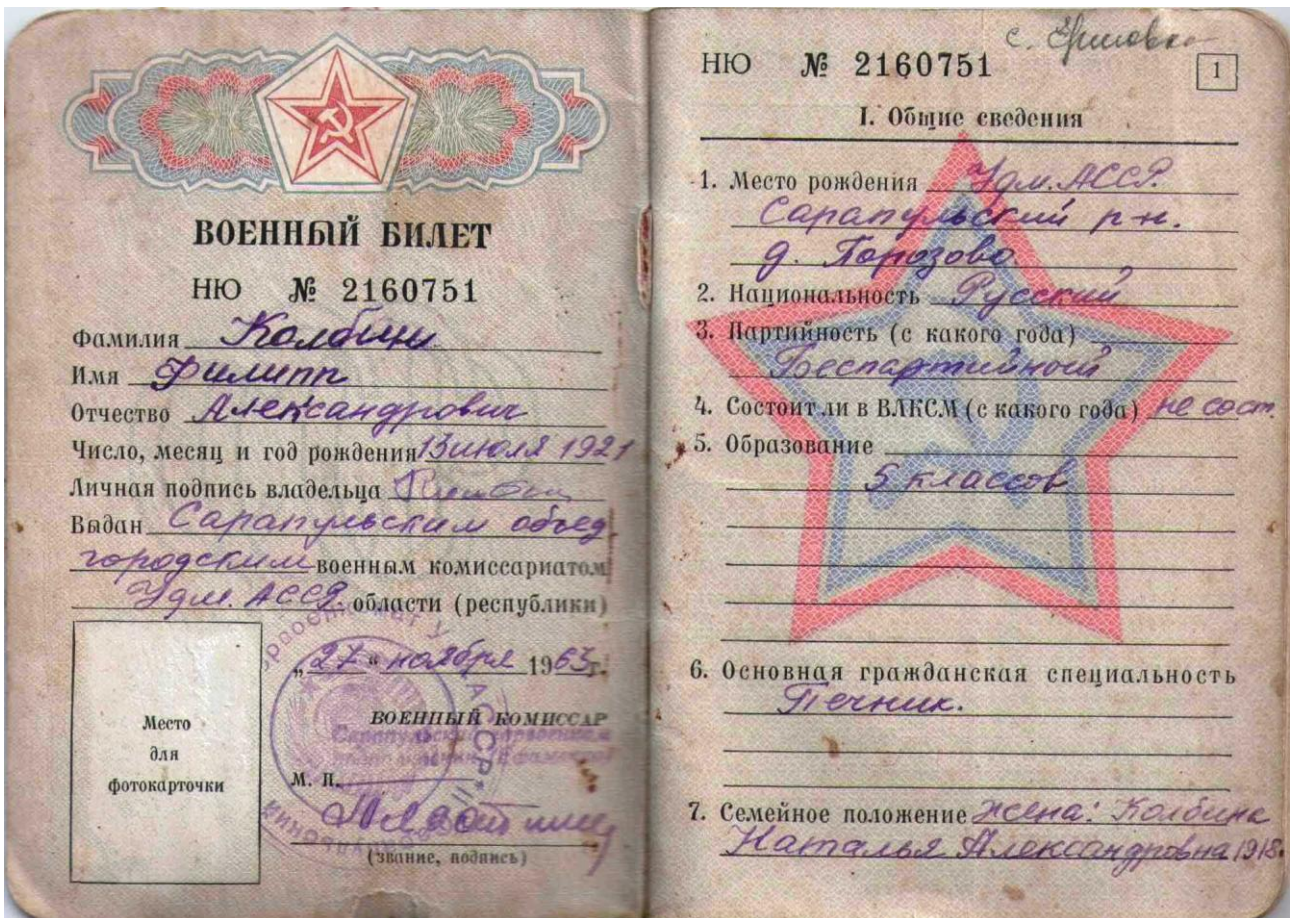 ВОЕННЫЙ БИЛЕТ
НЮ № 2160751
Фамилия Колбин
Имя Филипп
Отчество Александрович
Число, месяц и год рождения 13 июля 1921
Личная подпись владельца
Выдан Сарапульским объед
городским военным комиссариатом
Удм. АССР. области (республики)
„27“ ноября 1963 г.
Место
для
фотокарточки
ВОЕННЫЙ КОМИССАР
М. П.
(звание, подпись)
с.
НЮ № 2160751
1
I. Общие сведения
1. Место рождения Удм. АССР.
Сарапульский р-н.
д. Порозово
2. Национальность Русский
3. Партийность (с какого года)
Беспартийной
4. Состоит ли в ВЛКСМ (с какого года) не сост.
5. Образование
5 классов
6. Основная гражданская специальность
Печник.
7. Семейное положение жена: Колбина
Наталья Александровна 1918.